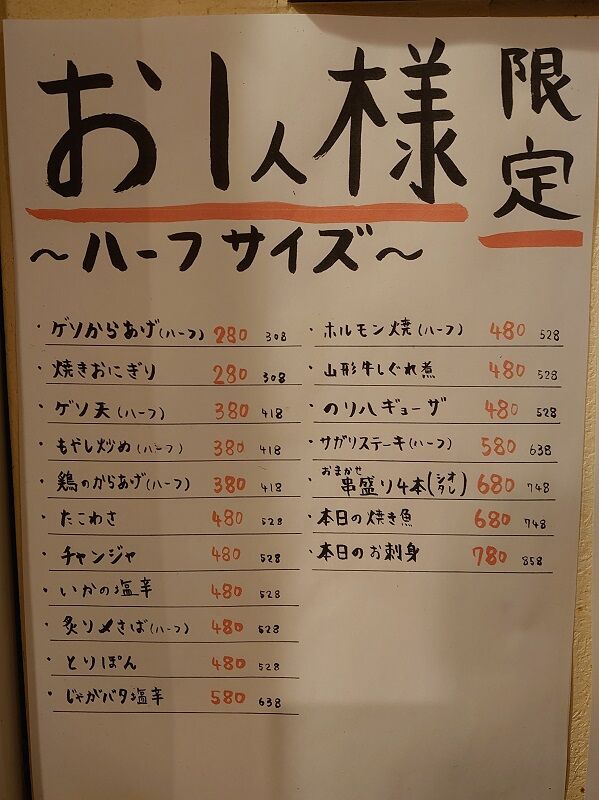 お1人様 限定
〜ハーフサイズ〜
・ゲソからあげ(ハーフ) 280 308
・焼きおにぎり 280 308
・ゲソ天(ハーフ) 380 418
・もやし炒め(ハーフ) 380 418
・鶏のからあげ(ハーフ) 380 418
・たこわさ 480 528
・チャンジャ 480 528
・いかの塩辛 480 528
・炙り〆さば(ハーフ) 480 528
・とりぽん 480 528
・じゃがバタ塩辛 580 638
・ホルモン焼(ハーフ) 480 528
・山形牛しぐれ煮 480 528
・のり八ギョーザ 480 528
・サガリステーキ(ハーフ) 580 638
・おまかせ串盛り4本(シオタレ) 680 748
・本日の焼き魚 680 748
・本日のお刺身 780 858